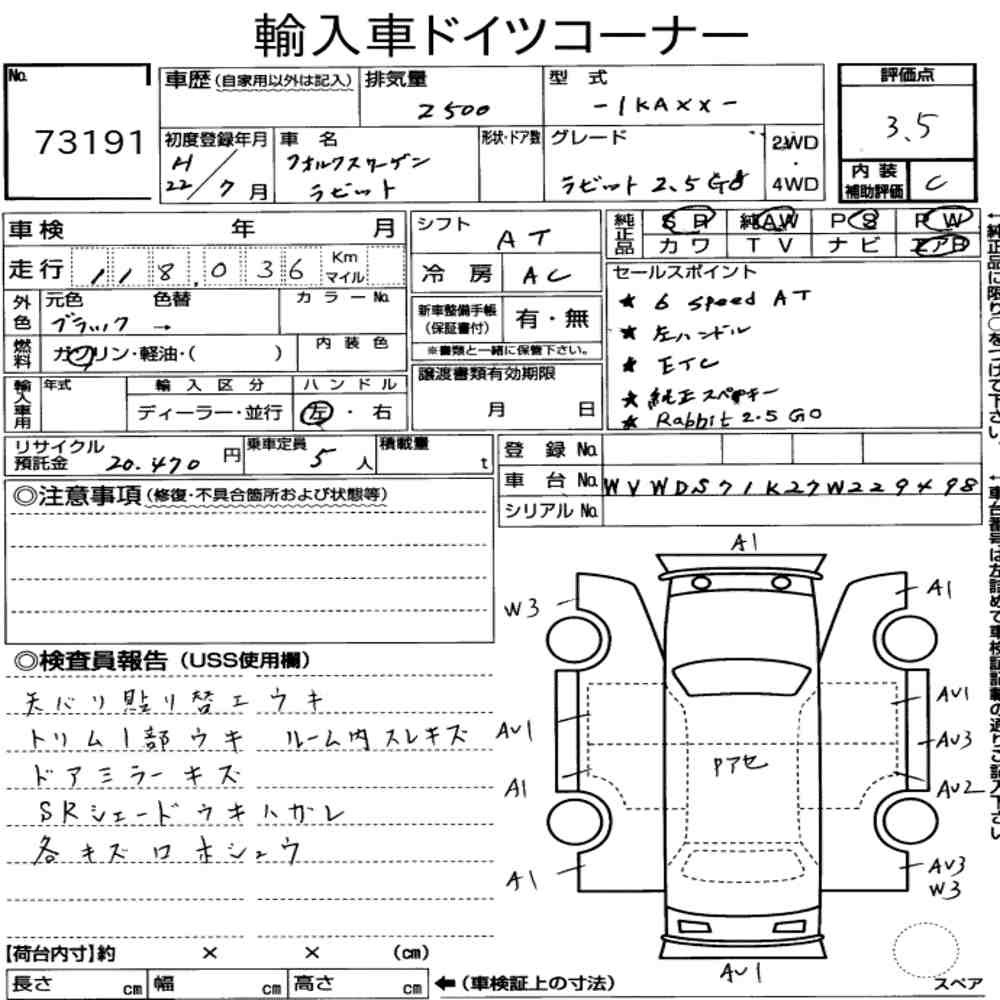 輸入車ドイツコーナー
No. 73191
車歴(自家用以外は記入)
排気量 2500
型式 -1KAxx-
評価点 3.5
初度登録年月 H22/7月
車名 フォルクスワーゲン ラビット
形状・ドア数
グレード ラビット 2.5 GO
2WD・4WD
内装補助評価 C
車検 年 月
シフト AT
純正品 SR 純AW PS PW
カワ TV ナビ エアB
走行 118,036 Km マイル
冷房 AC
セールスポイント
★ 6 speed AT
★ 左ハンドル
★ ETC
★ 純正スペアキー
★ Rabbit 2.5 GO
外色 元色 ブラック → 色替
カラーNo.
新車整備手帳(保証書付) 有・無
※書類と一緒に保管下さい。
燃料 ガソリン・軽油・( )
内装色
輸入車用 年式
輸入区分 ディーラー・並行
ハンドル 左・右
譲渡書類有効期限 月 日
リサイクル預託金 20.470円
乗車定員 5人
積載量 t
登録No.
車台No. WVWDS71K27W229498
シリアルNo.
◎注意事項(修復・不具合箇所および状態等)
◎検査員報告(USS使用欄)
天バリ貼り替エ ウキ
トリム1部ウキ ルーム内スレキズ
ドアミラーキズ
SRシェードウキハガレ
各キズロホシュウ
A1
W3
A1
AV1
AV1
AV3
Pアセ
A1
AV2
A1
AV3
W3
AV1
スペア
【荷台内寸】約 × × (cm)
長さ cm 幅 cm 高さ cm ←(車検証上の寸法)
↑純正品に限り○をつけて下さい。
↑車台番号は左詰めで車検証記載の通りご記入下さい